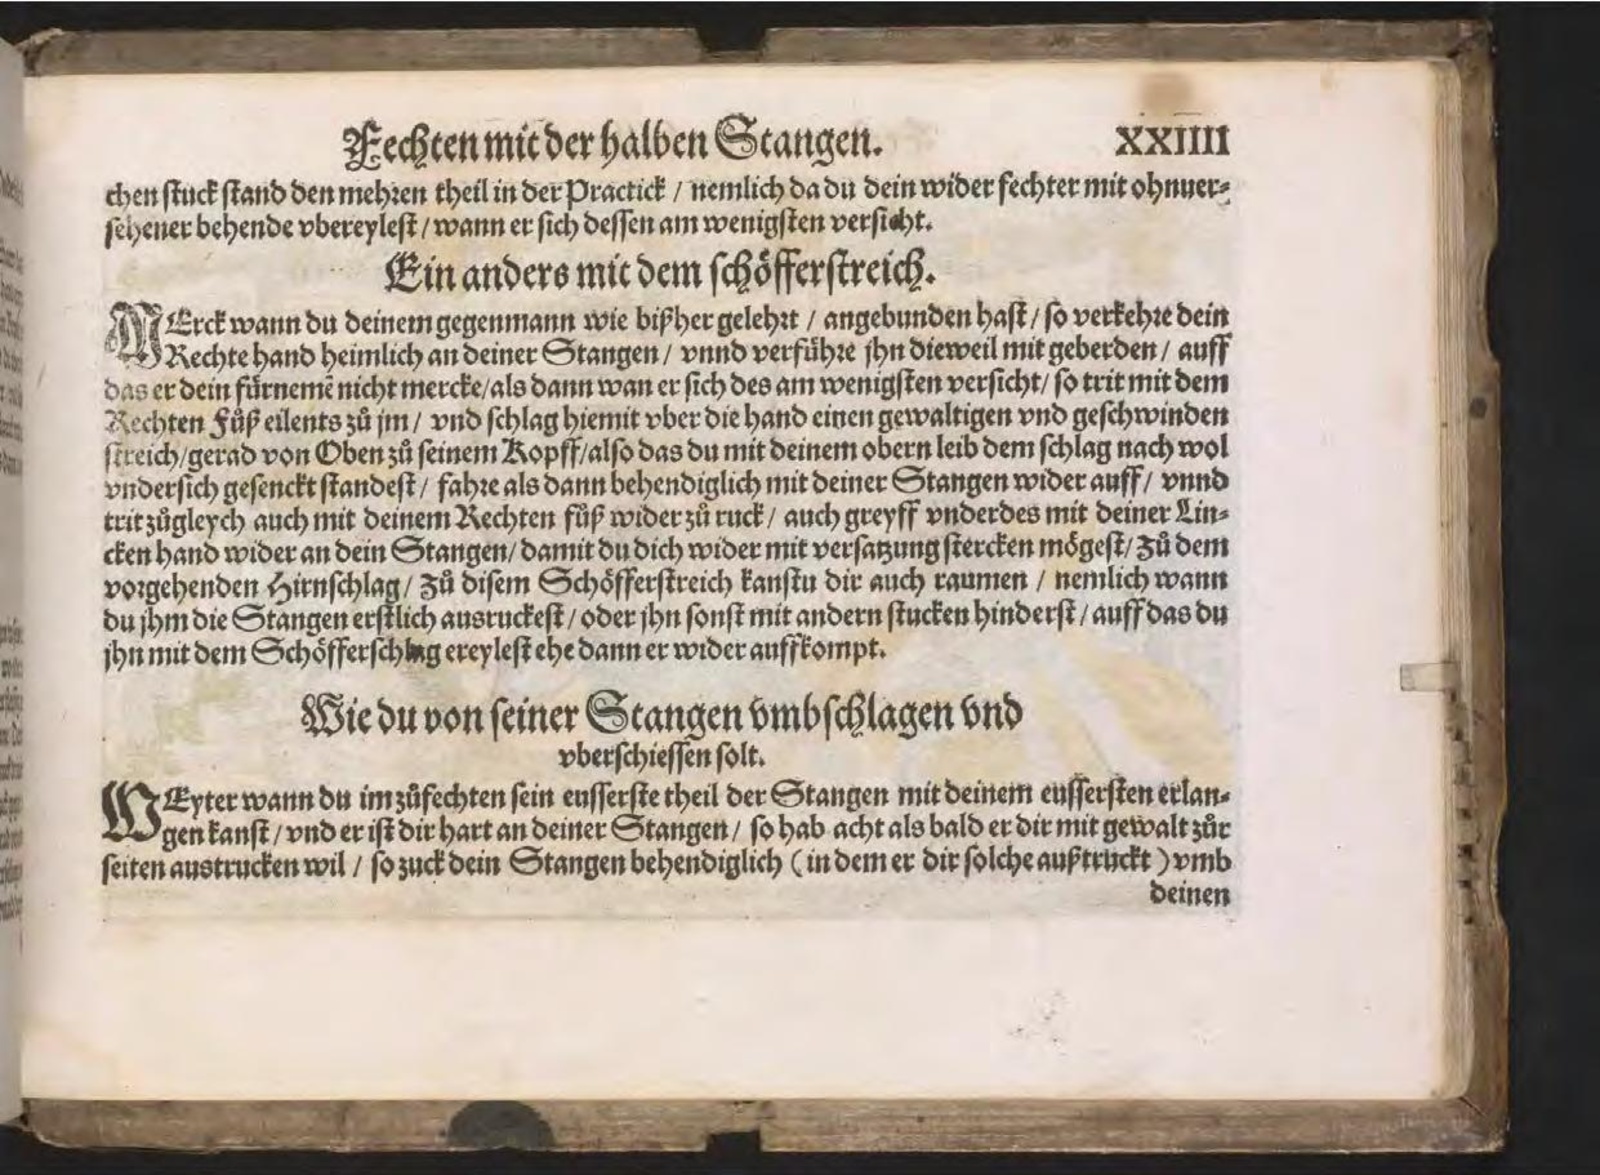 Fechten mit der halben Stangen. XXIIII
chen stuck stand den mehren theil in der Practick / nemlich da du dein wider fechter mit ohnuer-
sehener behende vbereylest / wann er sich dessen am wenigsten versicht.
Ein anders mit dem schöfferstreich.
MErck wann du deinem gegenmann wie bißher gelehrt / angebunden hast / so verkehre dein
Rechte hand heimlich an deiner Stangen / vnnd verführe jhn dieweil mit geberden / auff
das er dein fürnemẽ nicht mercke / als dann wan er sich des am wenigsten versicht / so trit mit dem
Rechten Fůß eilents zů jm / vnd schlag hiemit vber die hand einen gewaltigen vnd geschwinden
streich / gerad von Oben zů seinem Kopff / also das du mit deinem obern leib dem schlag nach wol
vndersich gesenckt standest / fahre als dann behendiglich mit deiner Stangen wider auff / vnnd
trit zůgleych auch mit deinem Rechten fůß wider zů ruck / auch greyff vnderdes mit deiner Lin-
cken hand wider an dein Stangen / damit du dich wider mit versatzung stercken mögest / Zů dem
vorgehenden Hirnschlag / Zů disem Schöfferstreich kanstu dir auch raumen / nemlich wann
du jhm die Stangen erstlich ausruckest / oder jhn sonst mit andern stucken hinderst / auff das du
jhn mit dem Schöfferschlag ereylest ehe dann er wider auffkompt.
Wie du von seiner Stangen vmbschlagen vnd
vberschiessen solt.
WEyter wann du im zůfechten sein eusserste theil der Stangen mit deinem eussersten erlan-
gen kanst / vnd er ist dir hart an deiner Stangen / so hab acht als bald er dir mit gewalt zůr
seiten austrucken wil / so zuck dein Stangen behendiglich (in dem er dir solche außtruckt) vmb
deinen